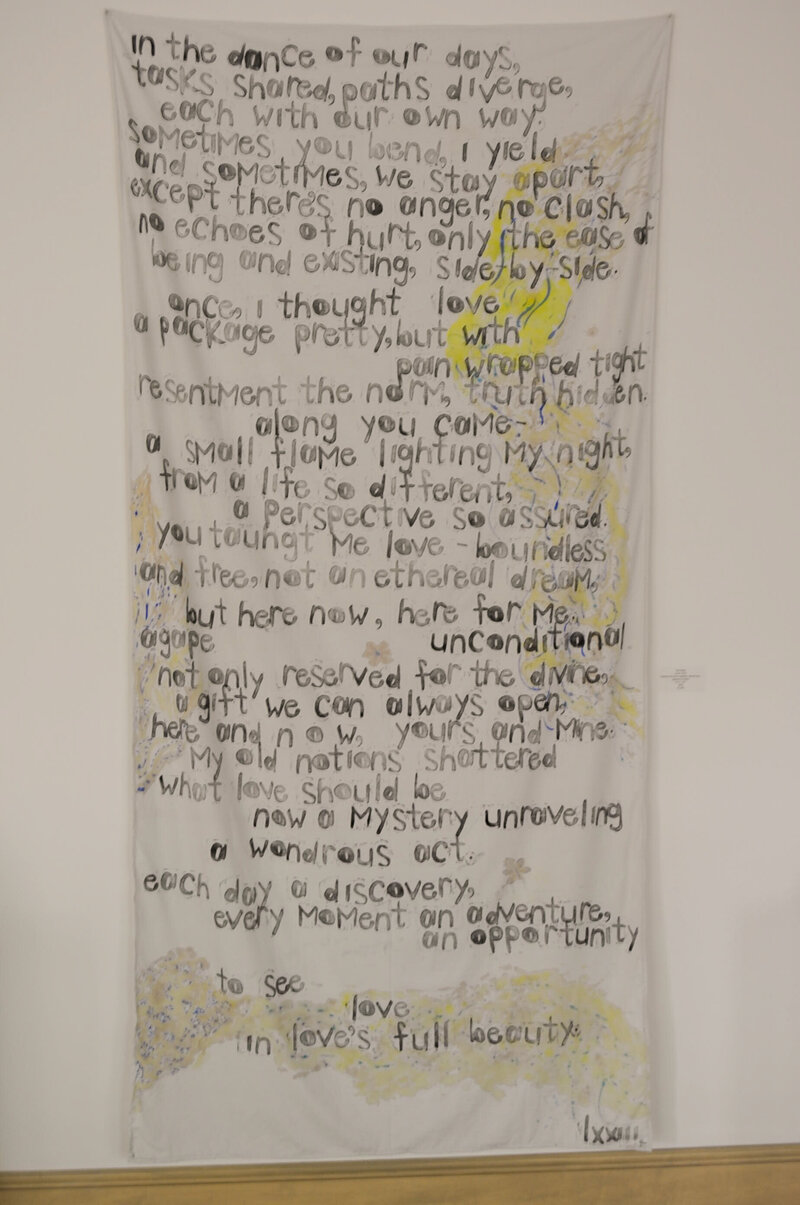 in the dance of our days,
tasks shared, paths diverge,
each with our own way.
sometimes you bend, i yield
and sometimes, we stay apart,
except there's no anger, no clash,
no echoes of hurt, only the ease of
being and existing, side-by-side.
once, i thought love
a package pretty, but with
pain wrapped tight
resentment the norm, truth hidden.
along you came-
a small flame lighting my night,
from a life so different,
a perspective so assured.
you toungt me love - boundless
and free, not an ethereal dream,
but here now, here for me.
agape unconditional
not only reserved for the divine,
a gift we can always open,
here and now, yours and mine.
My old notions shattered
what love should be
now a mystery unraveling
a wondrous act.
each day a discovery,
every moment an adventure,
an opportunity
to see
love
in love's full beauty.